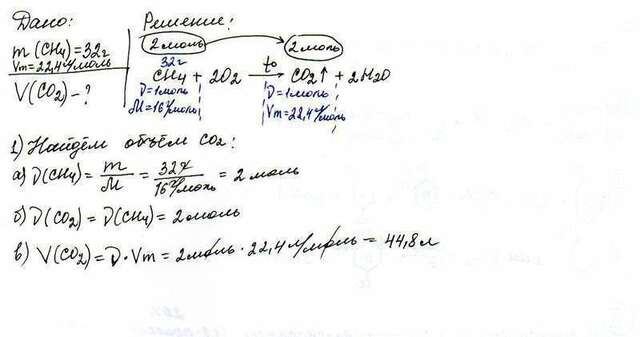 Дано:
Решение:
m(CH4)=32г
Vm=22,4 л/моль
V(CO2)-?
2 моль → 2 моль
32г
CH4 + 2O2 —t°→ CO2↑ + 2H2O
ν=1моль
M=16г/моль
ν=1моль
Vm=22,4л/моль
1) Найдём объём CO2:
а) ν(CH4) = m/M = 32г/16г/моль = 2 моль
б) ν(CO2) = ν(CH4) = 2моль
в) V(CO2) = ν·Vm = 2моль·22,4 л/моль = 44,8л